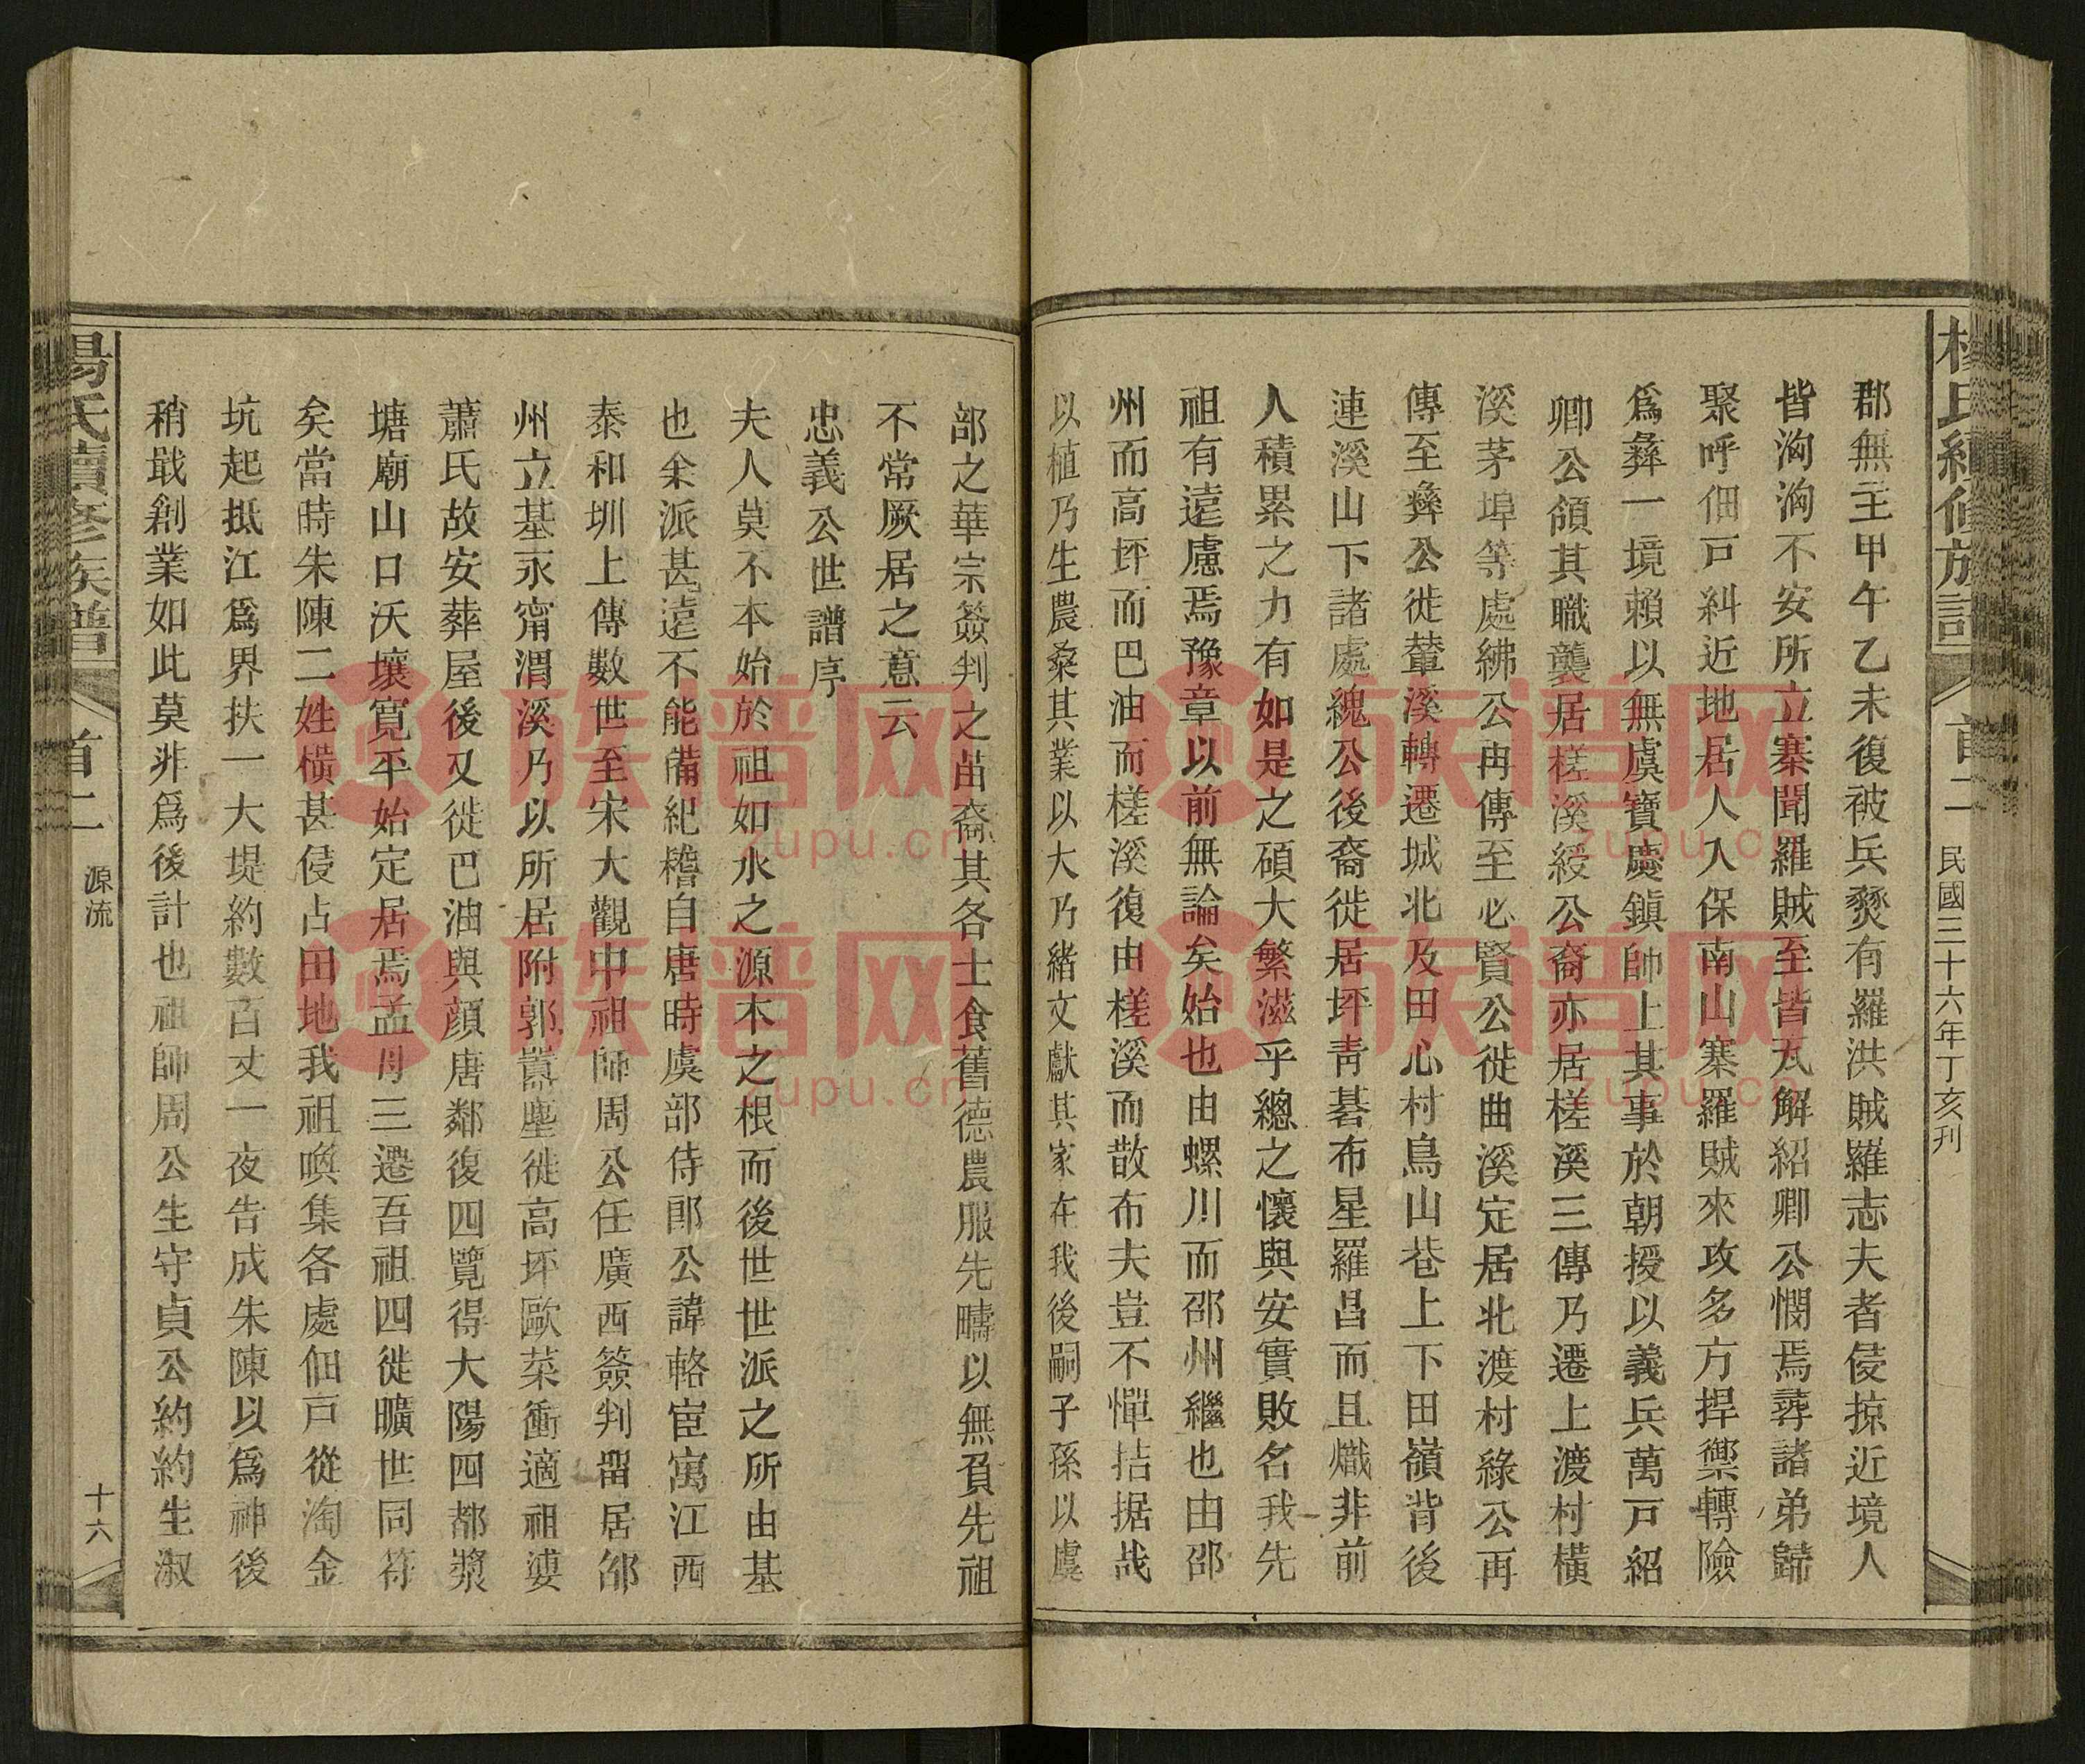 民國三十六年丁亥刊
郡無主甲午乙未復被兵燹有羅洪賊羅志夫者侵掠近境人
皆洶洶不安所立寨聞羅賊至皆瓦解紹卿公憫焉尋諸弟歸
聚呼佃戸糾近地居人入保南山寨羅賊來攻多方捍禦轉險
爲彝一境賴以無虞寶慶鎮帥上其事於朝授以義兵萬戸紹
卿公領其職襲居槎溪綬公裔亦居槎溪三傳乃遷上渡村橫
溪茅埠等處紼公冉傳至必賢公徙曲溪定居北渡村綠公再
傳至彝公徙輦溪轉遷城北及田心村鳥山巷上下田嶺背後
連溪山下諸處䌁公後裔徙居坪靑碁布星羅昌而且熾非前
人積累之力有如是之碩大繁滋乎總之懷與安實敗名我先
祖有遠慮焉豫章以前無論矣始也由螺川而邵州繼也由邵
州而高坪而巴油而槎溪復由槎溪而散布夫豈不憚拮据哉
以植乃生農桑其業以大乃緒文獻其家在我後嗣子孫以虞
部之華宗簽判之苗裔其各士食舊德農服先疇以無負先祖
不常厥居之意云
忠義公世譜序
夫人莫不本始於祖如水之源木之根而後世世派之所由基
也余派甚遠不能備紀稽自唐時虞部侍郎公諱輅宦寓江西
泰和圳上傳數世至宋大觀中祖師周公任廣西簽判留居邵
州立基永甯渭溪乃以所居附郭囂塵徙高坪歐菜衝適祖婆
蕭氏故安葬屋後又徙巴油與顔唐鄰復四覽得大陽四都漿
塘廟山口沃壤寬平始定居焉孟母三遷吾祖四徙曠世同符
矣當時朱陳二姓橫甚侵占田地我祖喚集各處佃戸從淘金
坑起抵江爲界扶一大堤約數百丈一夜告成朱陳以爲神後
稍戢創業如此莫非爲後計也祖師周公生守貞公約約生淑
楊氏續修族譜
首二
源流
十六